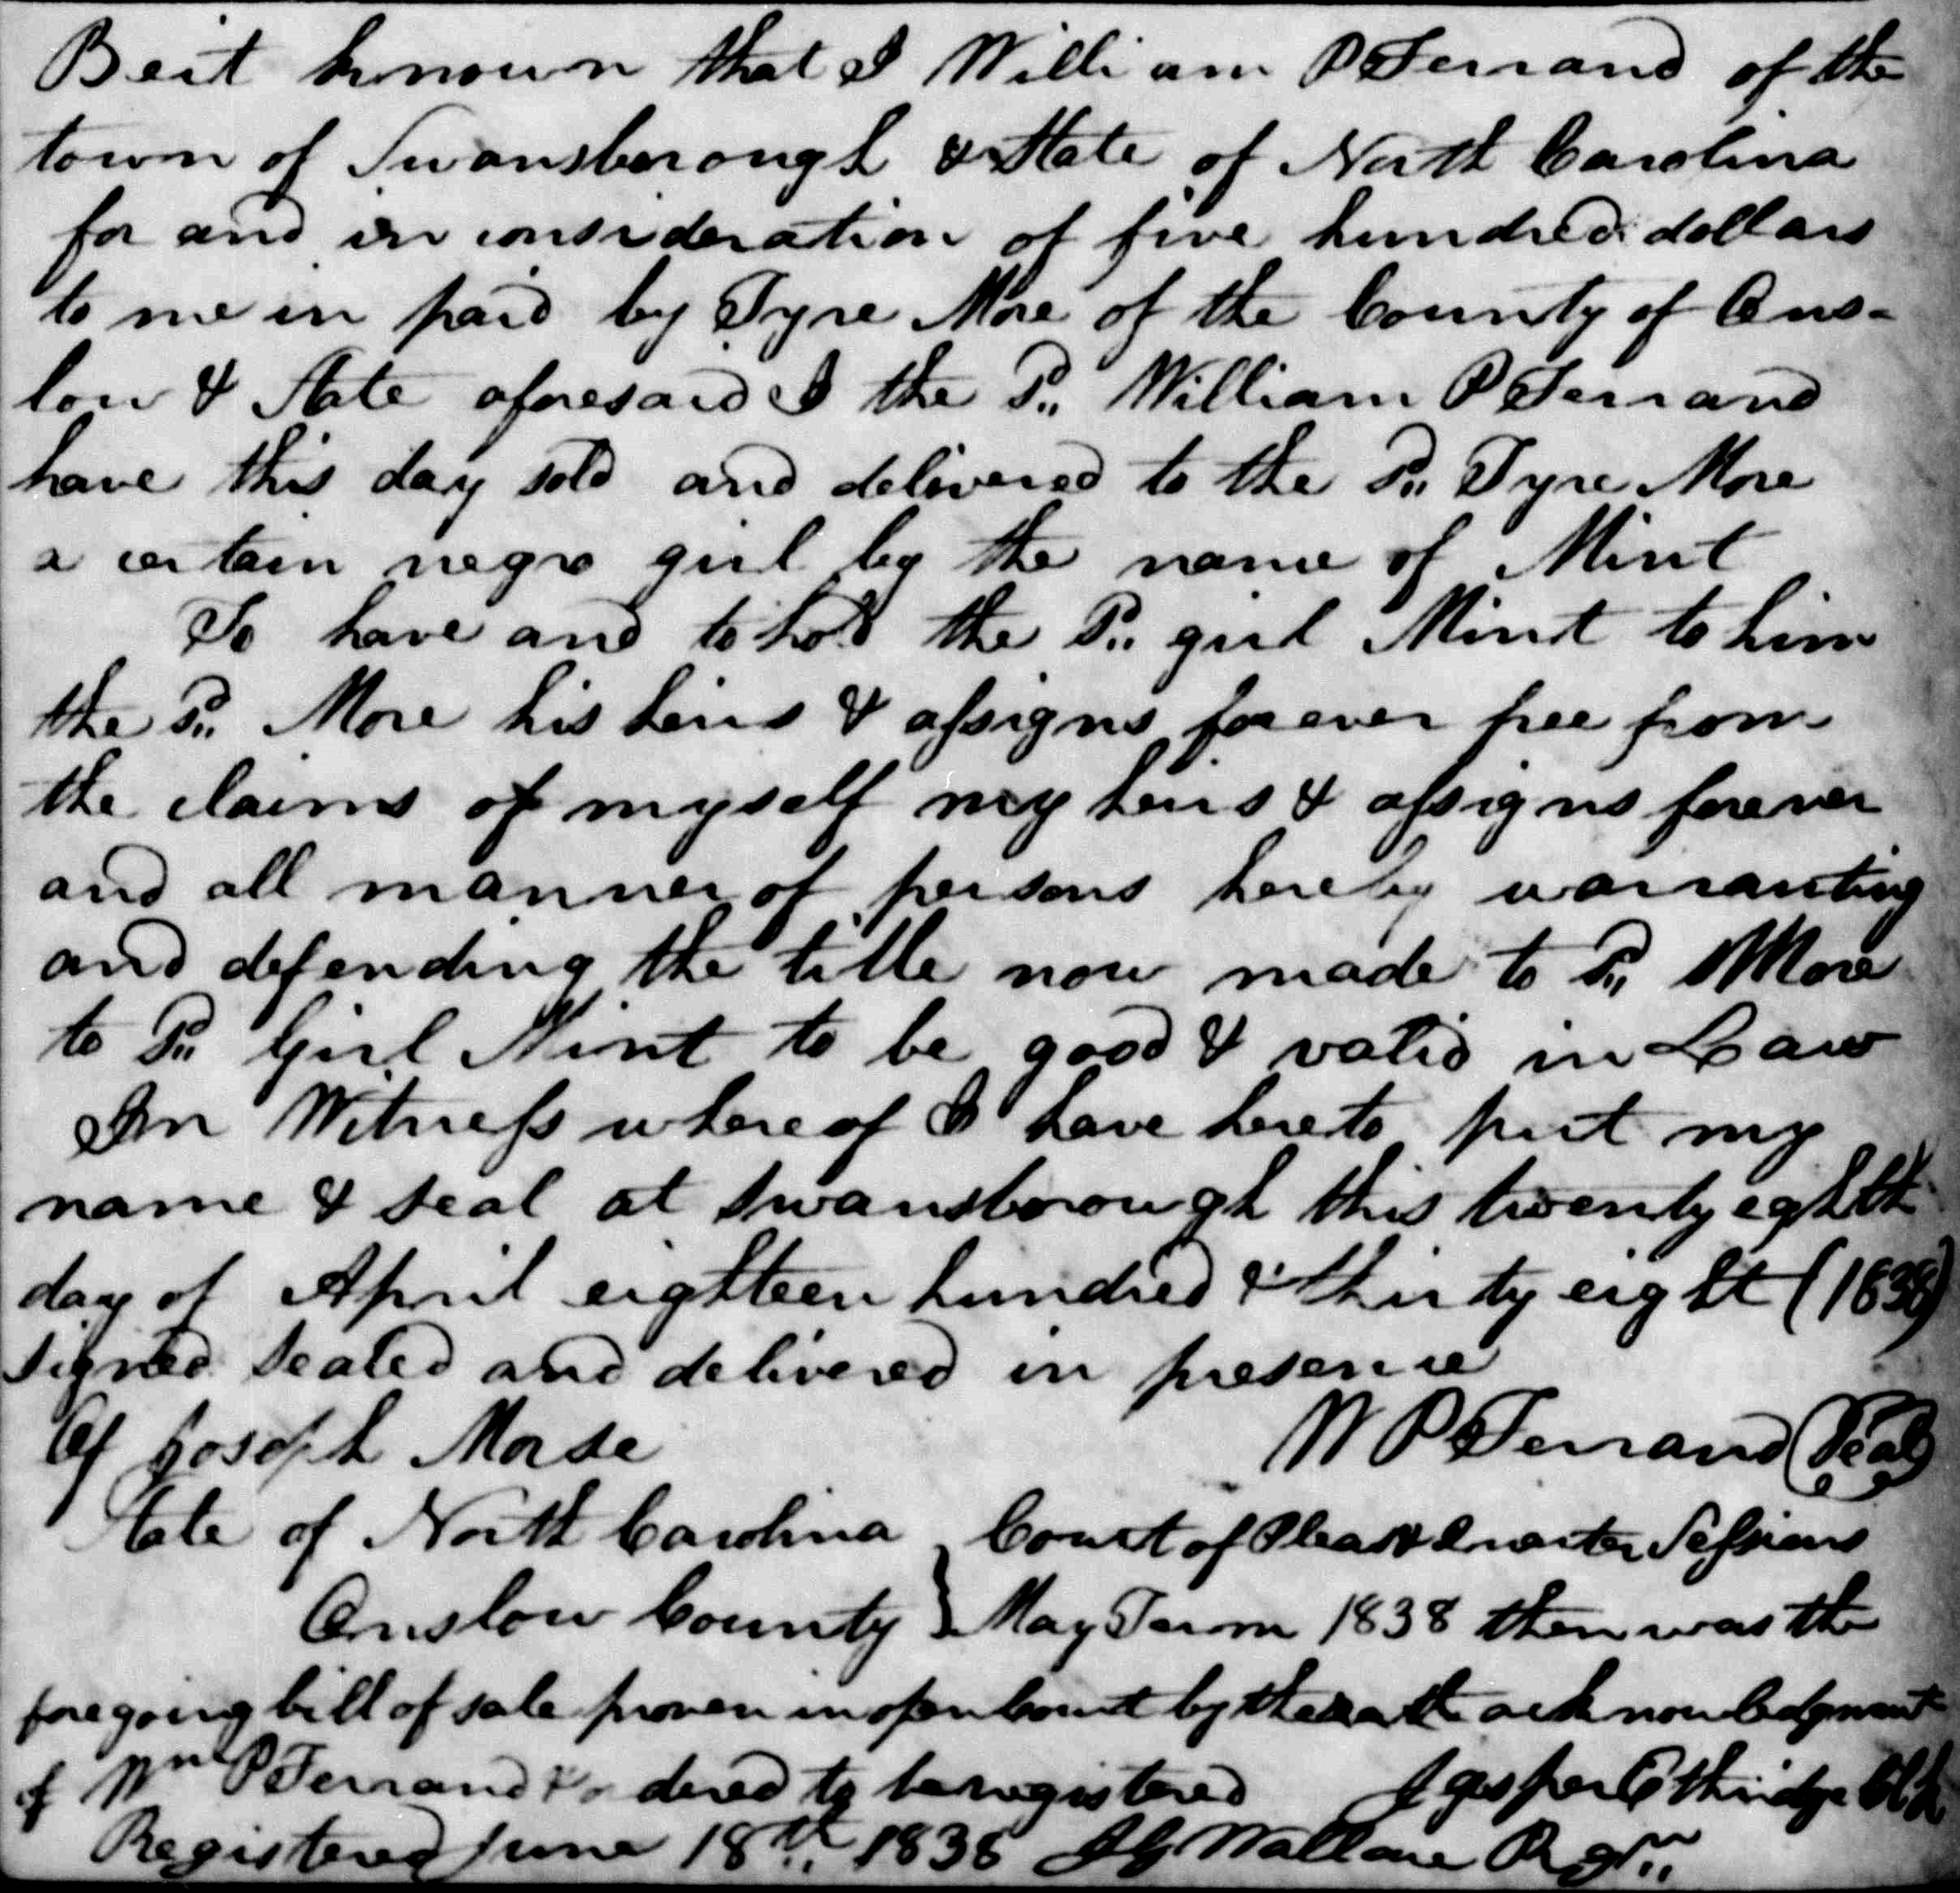 Be it known that I William P Ferrand of the
town of Swansborough & State of North Carolina
for and in consideration of five hundred dollars
to me in paid by Tyre More of the County of Ons-
low & State aforesaid I the Sd. William P Ferrand
have this day sold and delivered to the Sd. Tyre More
a certain negro girl by the name of Mint
To have and to hold the Sd. girl Mint to him
the Sd. More his heirs & assigns forever free from
the claims of myself my heirs & assigns forever
and all manner of persons hereby warranting
and defending the title now made to Sd. More
to Sd. Girl Mint to be good & valid in Law
In Witness whereof I have hereto put my
name & seal at Swansborough this twenty eghth
day of April eighteen hundred & thirty eight (1838)
Signed Sealed and delivered in presence
Of Joseph Morse W P Ferrand (Seal)
State of North Carolina } Court of Pleas & Quarter Sessions
Onslow County } May Term 1838 then was the
foregoing bill of sale proven in open Court by the acknowledgment
of Wm P Ferrand & ordered to be registered Jasper Ethridge Clk
Registered June 18th. 1838 Wallace Regr.